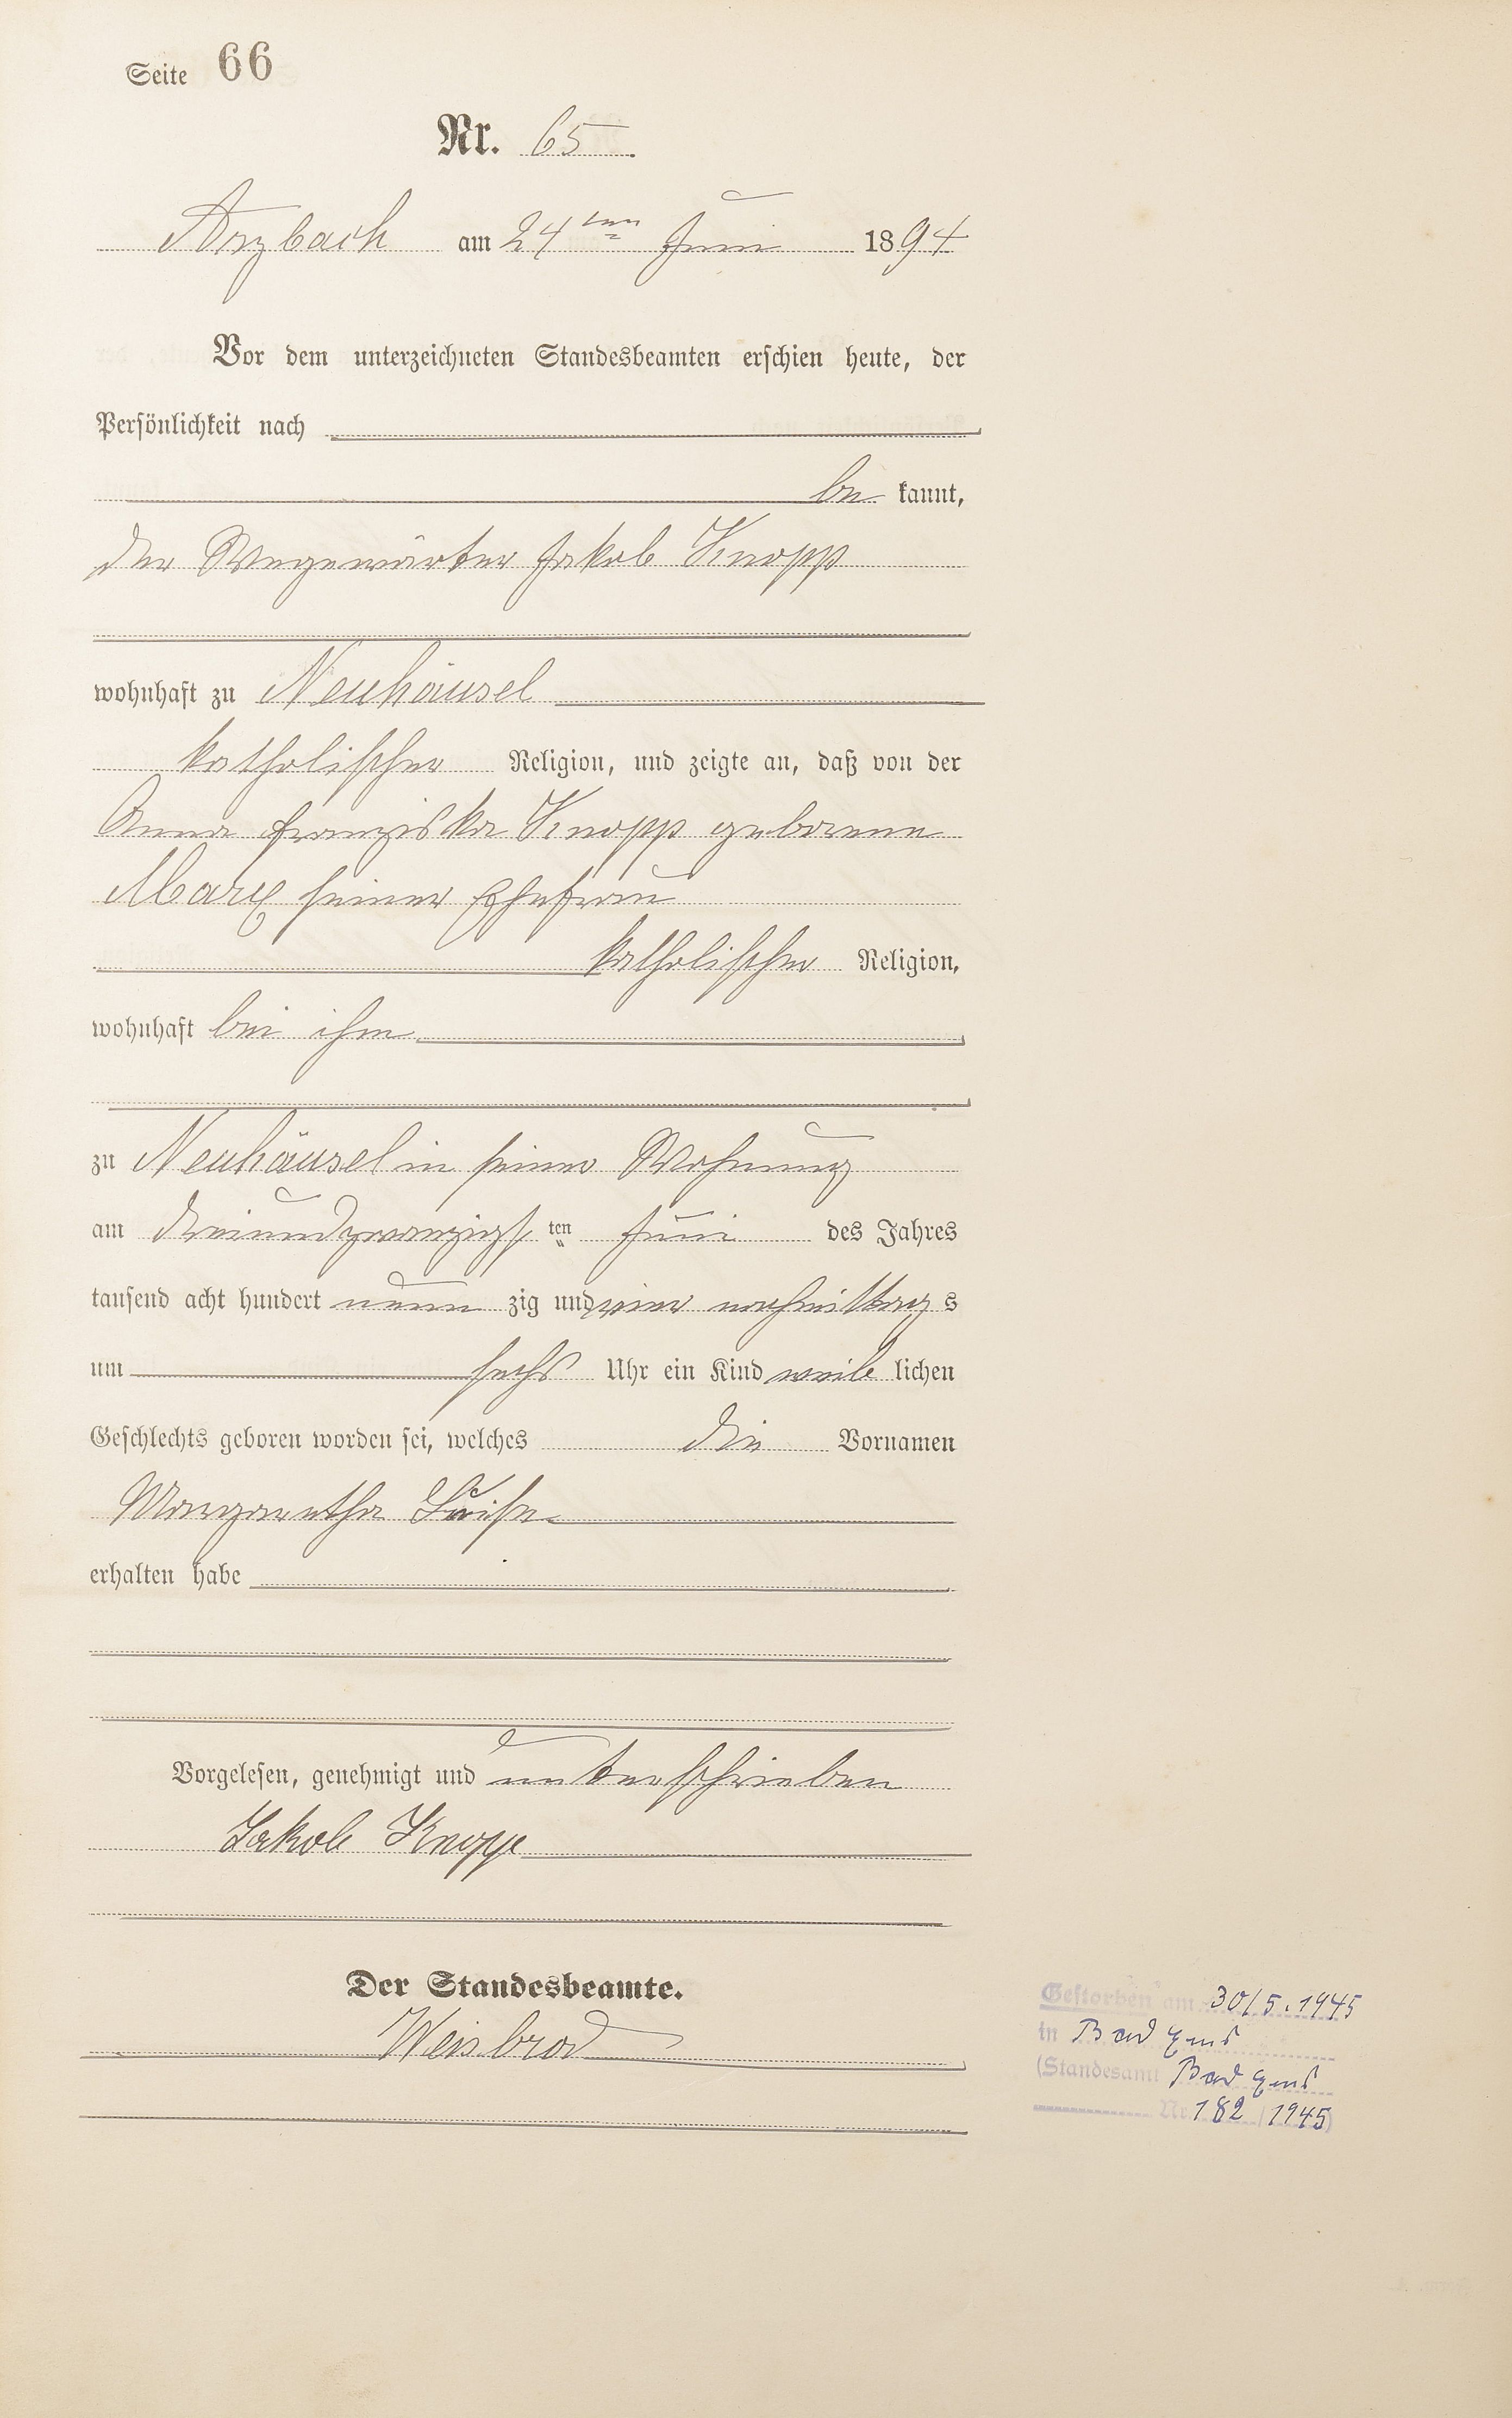 Seite 66
Nr. 65
Arzbach am 24ten Juni 1894
Vor dem unterzeichneten Standesbeamten erschien heute, der
Persönlichkeit nach
be kannt,
der Wegewärter Jakob Knopp
wohnhaft zu Neuhäusel
katholischer Religion, und zeigte an, daß von der
Anna Franziska Knopp geborene
Marx seiner Ehefrau
katholischer Religion,
wohnhaft bei ihm
zu Neuhäusel in seiner Wohnung
am dreiundzwanzigsten Juni des Jahres
tausend acht hundert neun zig und vier nachmittags
um sechs Uhr ein Kind weib lichen
Geschlechts geboren worden sei, welches die Vornamen
Margaretha Luise
erhalten habe
Vorgelesen, genehmigt und unterschrieben
Jakob Knopp
Der Standesbeamte.
Weisbrod
Gestorben am 30/5.1945
in Bad Ems
(Standesamt Bad Ems
Nr. 182/1945)